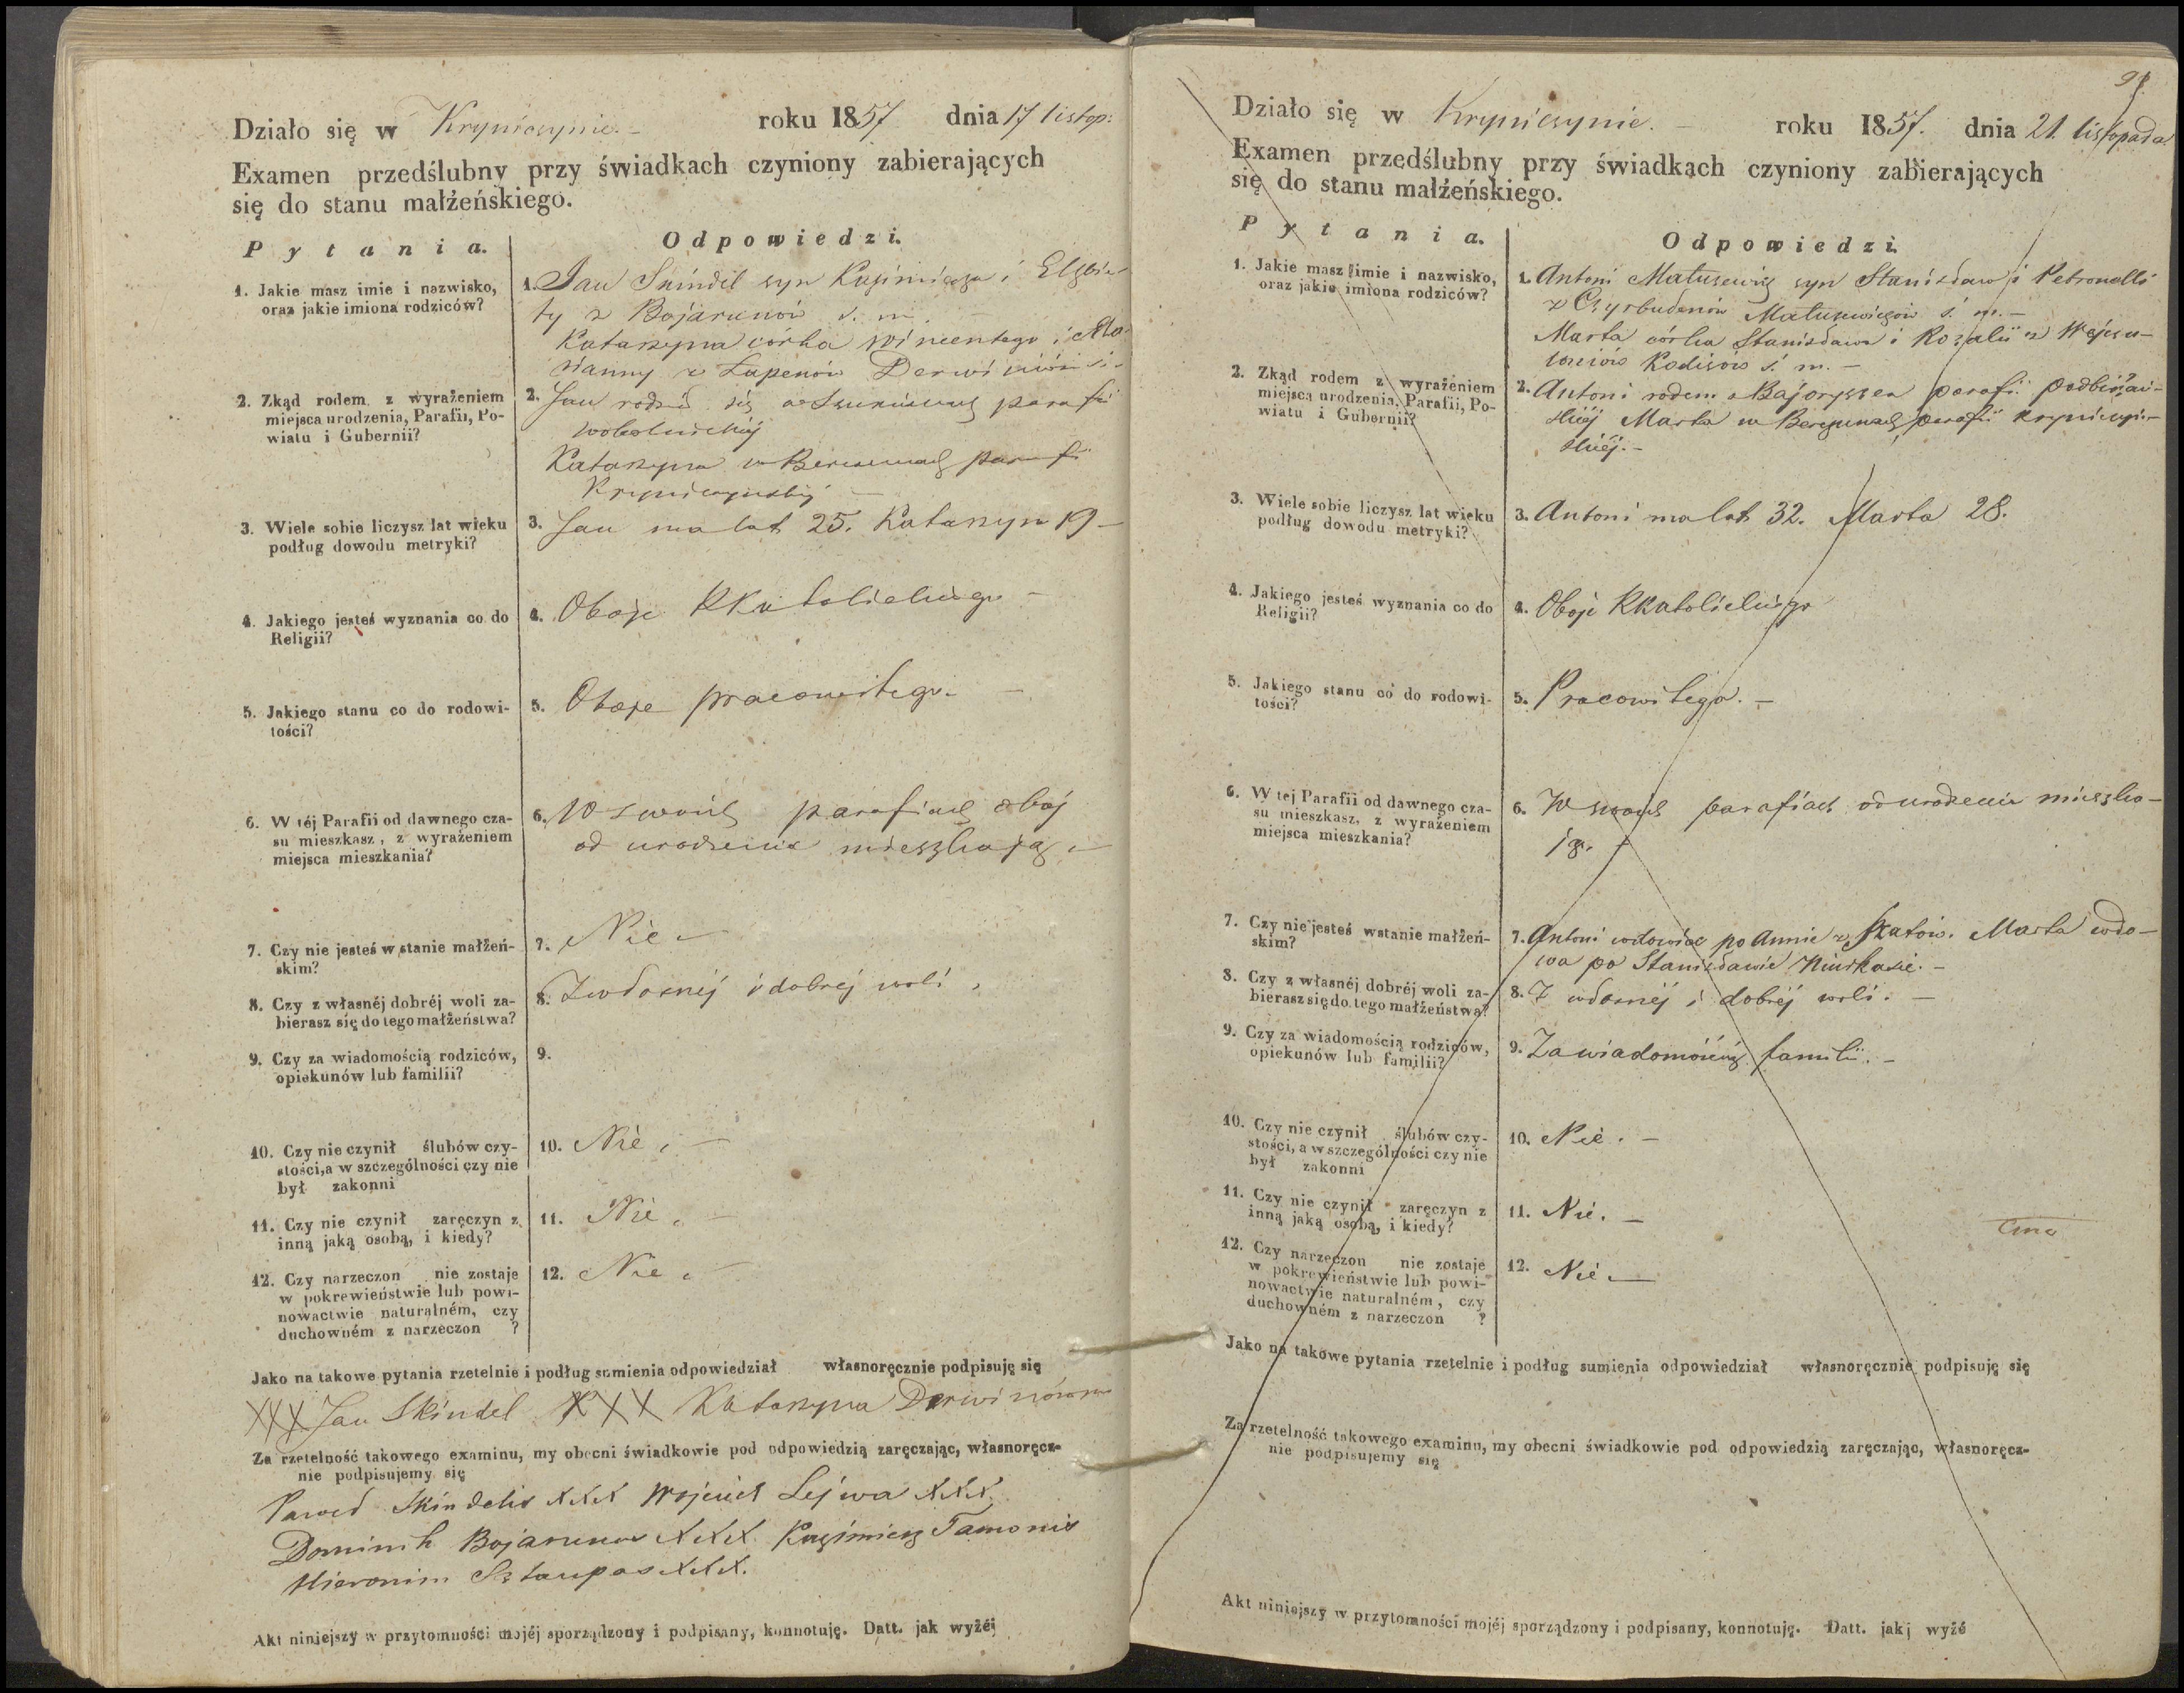 Działo się w Kryniczynie. roku 1857 dnia 17 listop:
Examen przedślubny przy świadkach czyniony zabierających
się do stanu małżeńskiego.
Pytania.
Odpowiedzi.
1. Jakie masz imie i nazwisko,
oraz jakie imiona rodziców?
1. Jan Skindel syn Kazimierza i Elżbie-
ty z Bojarunów ś. m.
Katarzyna córka Wincentego i Ma-
rianny z Łapenów
2. Zkąd rodem z wyrażeniem
miejsca urodzenia, Parafii, Po-
wiatu i Gubernii?
2. Jan rodził się parafii
wobolnickiej
Katarzyna w parafii
Kryniczynskiej
3. Wiele sobie liczysz lat wieku
podług dowodu metryki?
3. Jan ma lat 25. Katarzyn 19 –
4. Jakiego jesteś wyznania co do
Religii?
4. Oboje RKatolickiego –
5. Jakiego stanu co do rodowi-
tości?
5. Oboje pracowitego. –
6. W téj Parafii od dawnego cza-
su mieszkasz, z wyrażeniem
miejsca mieszkania?
6. W swoich parafiach oboj
od urodzenia mieszkają. –
7. Czy nie jesteś w stanie małżeń-
skim?
7. Nie –
8. Czy z własnéj dobréj woli za-
bierasz się do tego małżeństwa?
8. Z własnéj i dobréj woli.
9. Czy za wiadomością rodziców,
opiekunów lub familii?
9.
10. Czy nie czynił ślubów czy-
stości, a w szczególności czy nie
był zakonni
10. Nie. –
11. Czy nie czynił zaręczyn z
inną jaką osobą, i kiedy?
11. Nie. –
12. Czy narzeczon nie zostaje
w pokrewieństwie lub powi-
nowactwie naturalném, czy
duchowném z narzeczon ?
12. Nie. –
Jako na takowe pytania rzetelnie i podług sumienia odpowiedział własnoręcznie podpisuję się
XXX Jan Skindel XXX Katarzyna Derwinówna
Za rzetelność takowego examinu, my obecni świadkowie pod odpowiedzią zaręczając, własnoręcz-
nie podpisujemy się
Paweł Skindelis XXX Wojciech Lejwa XXX
Dominik Bojarunas XXX Kazimierz Tamonis
Hieronim Sztaupas XXX.
Akt niniejszy w przytomności mojéj sporządzony i podpisany, konnotuję. Datt. jak wyżéj
Działo się w Kryniczynie. – roku 1857. dnia 21. listopada
Examen przedślubny przy świadkach czyniony zabierających
się do stanu małżeńskiego.
Pytania.
Odpowiedzi.
1. Jakie masz imie i nazwisko,
oraz jakie imiona rodziców?
1. Antoni Matusewicz syn Stanisława i Petronelli
z Matusewiczów ś. m. –
Marta córka Stanisława i Rozalii z
Kodisów ś. m. –
2. Zkąd rodem z wyrażeniem
miejsca urodzenia, Parafii, Po-
wiatu i Gubernii?
2. Antoni rodem z parafii
skiéj Marta w parafii Krynicyn-
skiéj. –
3. Wiele sobie liczysz lat wieku
podług dowodu metryki?
3. Antoni ma lat 32. Marta 28.
4. Jakiego jesteś wyznania co do
Religii?
4. Oboje RKatolickiego
5. Jakiego stanu co do rodowi-
tości?
5. Pracowitego. –
6. W tej Parafii od dawnego cza-
su mieszkasz, z wyrażeniem
miejsca mieszkania?
6. W swoich parafiach od urodzenia mieszka-
ją. –
7. Czy nie jesteś w stanie małżeń-
skim?
7. Antoni wdowiec po Annie z Marta wdo-
wa po Stanisławie –
8. Czy z własnéj dobréj woli za-
bierasz się do tego małżeństwa?
8. Z własnéj i dobréj woli. –
9. Czy za wiadomością rodziców,
opiekunów lub familii?
9. Za wiadomością familii. –
10. Czy nie czynił ślubów czy-
stości, a w szczególności czy nie
był zakonni
10. Nie. –
11. Czy nie czynił zaręczyn z
inną jaką osobą, i kiedy?
11. Nie. –
12. Czy narzeczon nie zostaje
w pokrewieństwie lub powi-
nowactwie naturalném, czy
duchowném z narzeczon ?
12. Nie –
Jako na takowe pytania rzetelnie i podług sumienia odpowiedział własnoręcznie podpisuję się
Za rzetelność takowego examinu, my obecni świadkowie pod odpowiedzią zaręczając, własnoręcz-
nie podpisujemy się
Akt niniejszy w przytomności mojéj sporządzony i podpisany, konnotuję. Datt. jakj wyżé